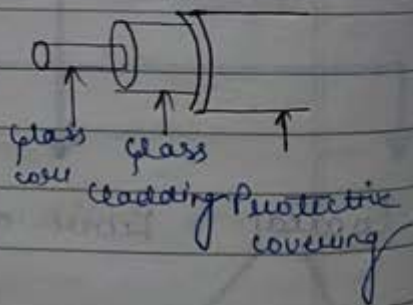 Glass
core
Glass
Cladding
Protective
covering